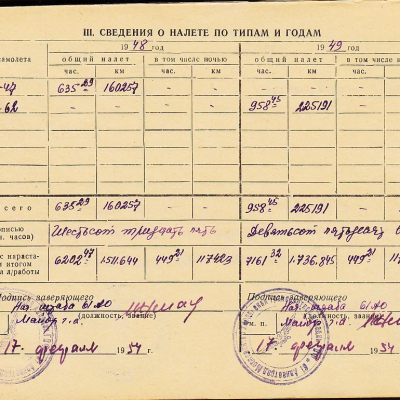 III. СВЕДЕНИЯ О НАЛЕТЕ ПО ТИПАМ И ГОДАМ
1948 год 1949 год
самолета общий налет в том числе ночью общий налет в том числе н
час. км час. км час. км час.
-47 635 29 160257 - - - - -
-62 958 45 225191 -
сего 635 29 160257 - - 958 45 225191 -
писью
н. часов) Шестьсот тридцать пять Девятьсот пятьдесят в
с нараста-
итогом
л др/работы 6202 47 1511.644 449 21 117423 7161 32 1.736.845 449 21 117
Подпись заверяющего Подпись заверяющего
Нач. штаба 61 АО Нач. штаба 61 АО
Майор т.а. Майор т.а.
(должность, звание) (должность, звани
м. п.
"17" февраля 1954 г. "17" февраля 1954